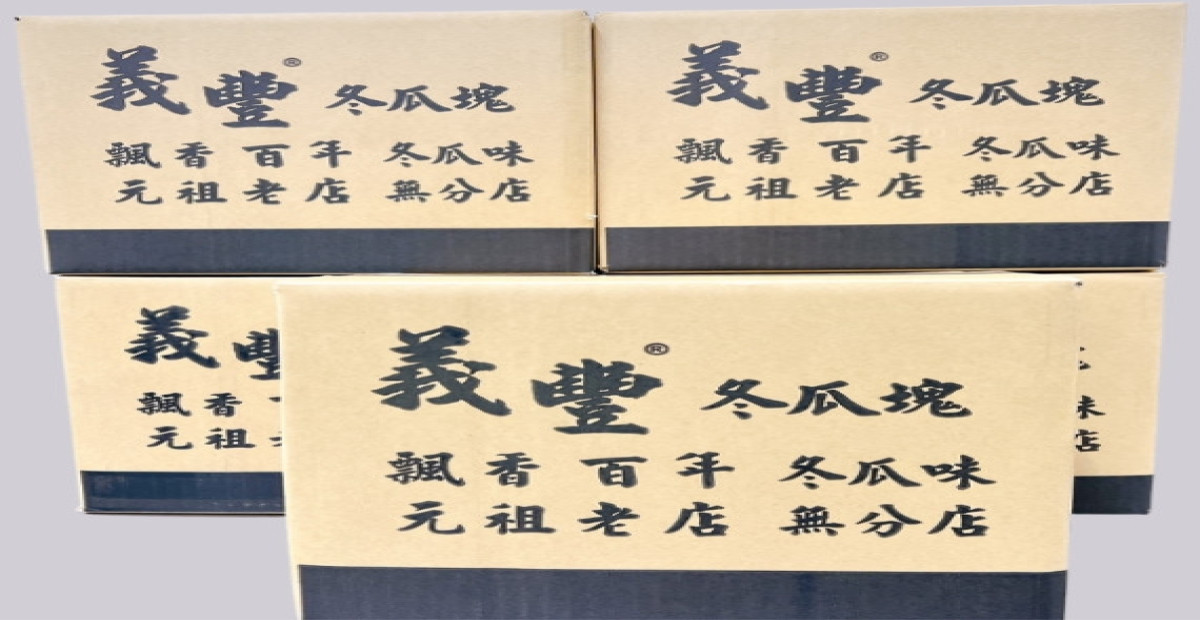 義豐® 冬瓜塊
飄香百年 冬瓜味
元祖老店 無分店
義豐® 冬瓜塊
飄香百年 冬瓜味
元祖老店 無分店
義豐
飄香
元祖
義豐® 冬瓜塊
飄香百年 冬瓜味
元祖老店 無分店
味
店